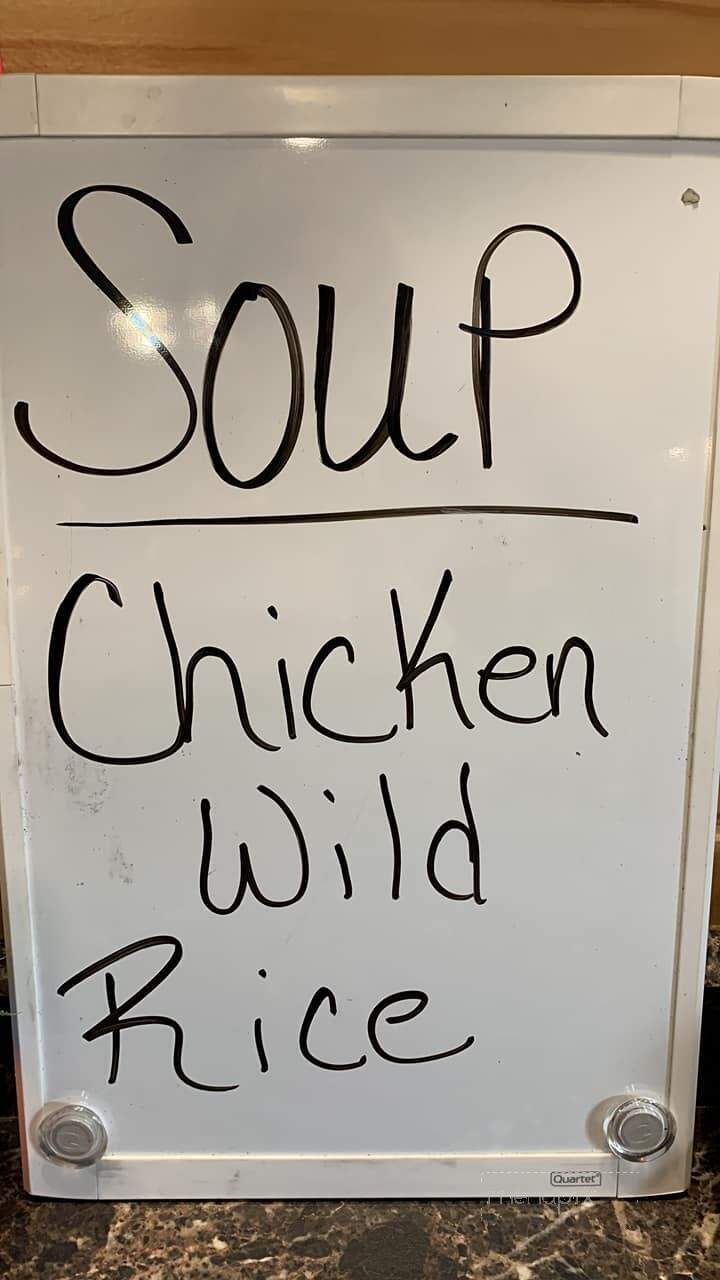 Soup
Chicken
Wild
Rice
Quartet